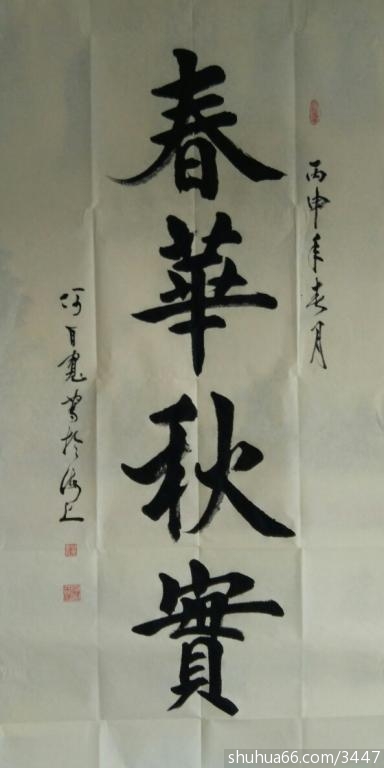 丙申年春月
春華秋實
何百寬書於海上
shuhua66.com/3447